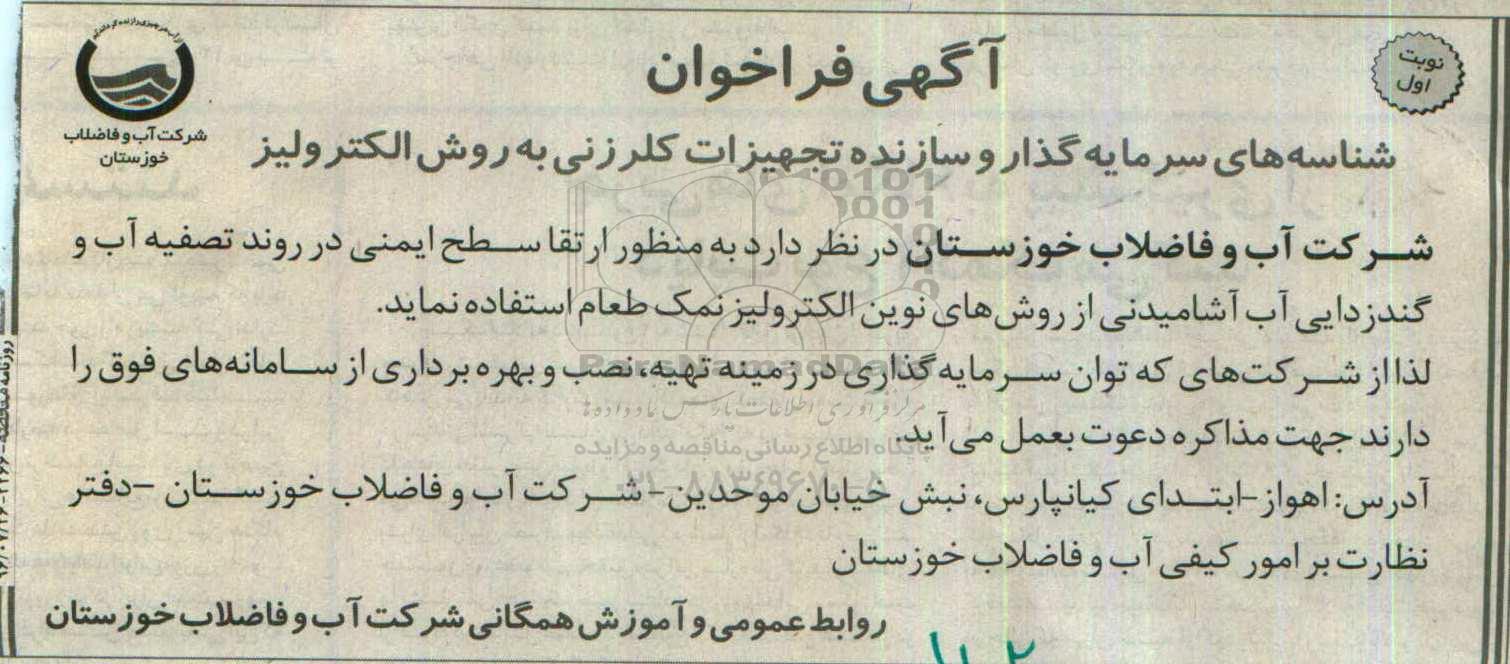 نوبت
اول
آگهی فراخوان
شرکت آب و فاضلاب
خوزستان
شناسه‌های سرمایه گذار و سازنده تجهیزات کلرزنی به روش الکترولیز
شرکت آب و فاضلاب خوزستان در نظر دارد به منظور ارتقا سطح ایمنی در روند تصفیه آب و
گندزدایی آب آشامیدنی از روش‌های نوین الکترولیز نمک طعام استفاده نماید.
لذا از شرکت‌های که توان سرمایه گذاری در زمینه تهیه، نصب و بهره برداری از سامانه‌های فوق را
دارند جهت مذاکره دعوت بعمل می‌آید.
آدرس: اهواز-ابتدای کیانپارس، نبش خیابان موحدین- شرکت آب و فاضلاب خوزستان –دفتر
نظارت بر امور کیفی آب و فاضلاب خوزستان
روابط عمومی و آموزش همگانی شرکت آب و فاضلاب خوزستان
ParsNamadData
پایگاه اطلاع رسانی مناقصه و مزایده
۰۲۱-۸۸۳۴۹۶۷۰-۵